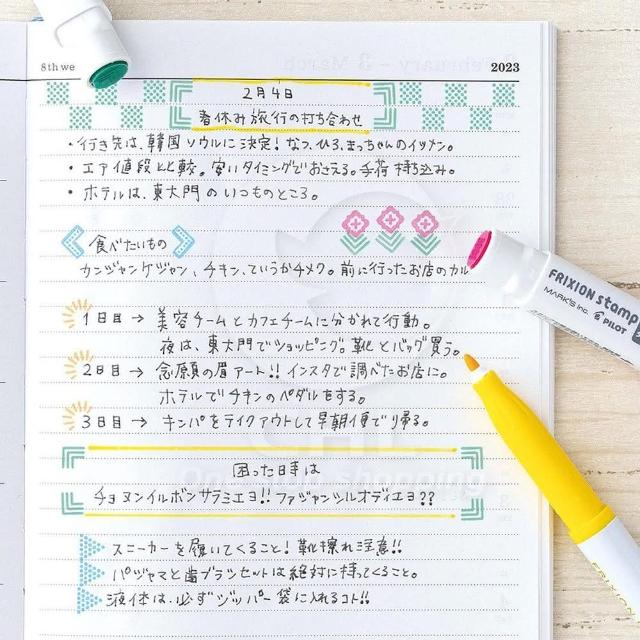 8th we
2023
2月4日
春休み旅行の打ち合わせ
・行き先は、韓国ソウルに決定！なつ、ひろ、まっちゃんのイツメン。
・エア値段比較。安いタイミングでおさえる。手荷持ち込み。
・ホテルは、東大門のいつものところ。
食べたいもの
カンジャンケジャン、チキン、ていうかチメク。前に行ったお店のカル
1日目→美容チームとカフェチームに分かれて行動。
夜は、東大門でショッピング。靴とバッグ買う。
2日目→念願の眉アート!!インスタで調べたお店に。
ホテルでチキンのペダルをする。
3日目→キンパをテイクアウトして早朝便で帰る。
困った日寺は
チョヌンイルボンサラミエヨ!!ファジャンシルオディエヨ??
スニーカーを履いてくること！靴擦れ注意!!
パジャマと歯ブラシセットは絶対に持ってくること。
液体は、必ずジッパー袋に入れるコト!!
FRIXION stamp
MARK'S Inc. PILOT